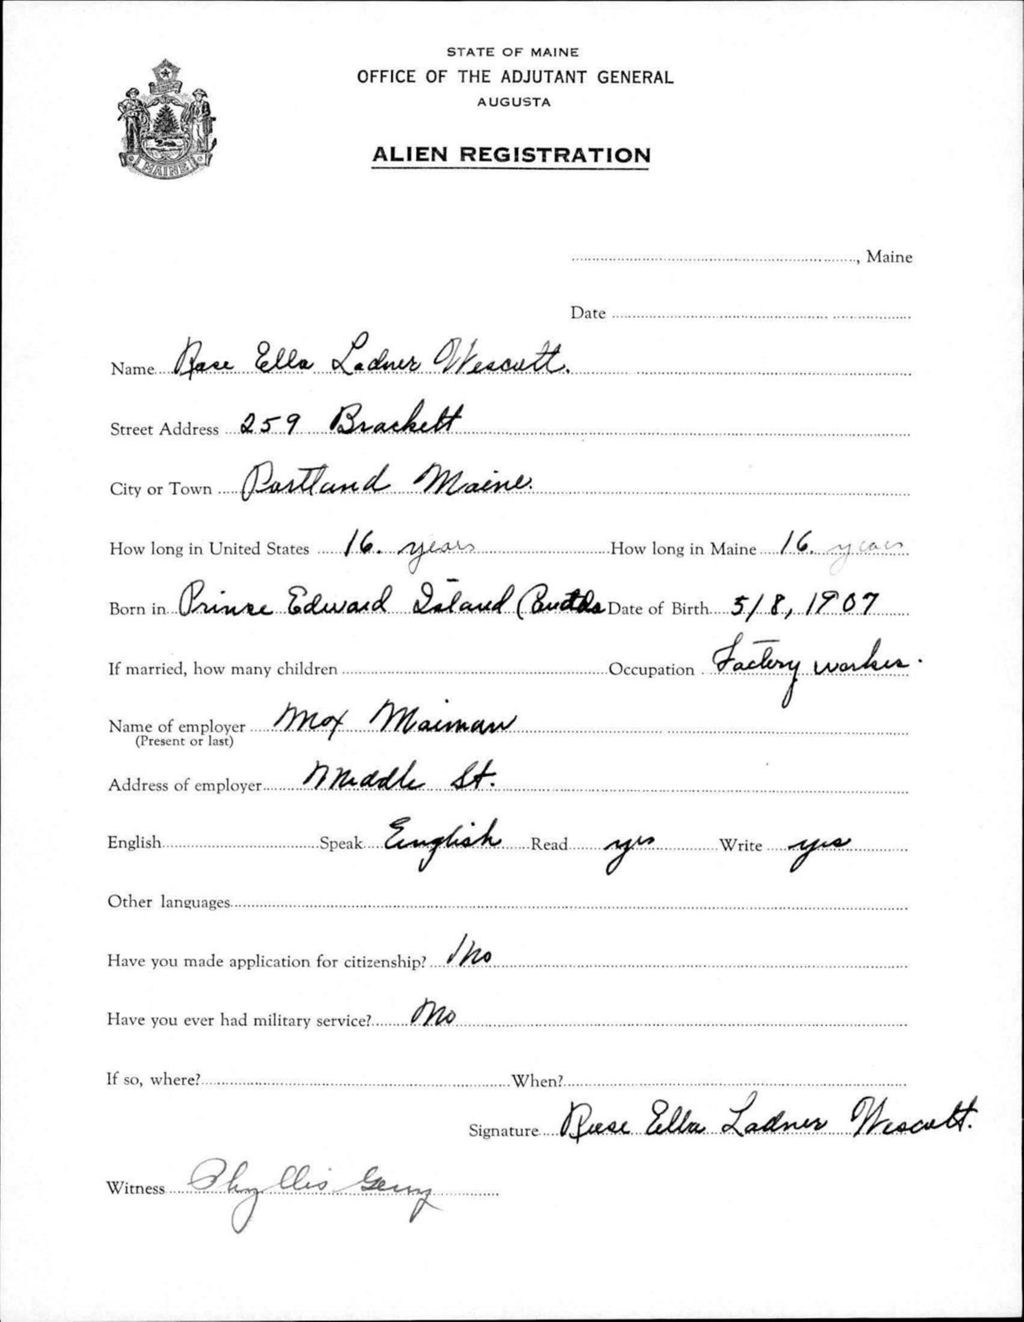 STATE OF MAINE
OFFICE OF THE ADJUTANT GENERAL
AUGUSTA
ALIEN REGISTRATION
MAINE
, Maine
Date
Name Rose Ella Ladner Wescott.
Street Address 259 Brackett
City or Town Portland Maine.
How long in United States 16. years How long in Maine 16. years
Born in Prince Edward Island ( Date of Birth 5/8, 1907
If married, how many children Occupation Factory worker.
Name of employer Max Maiman
(Present or last)
Address of employer Middle St.
English Speak English Read yes Write yes
Other languages
Have you made application for citizenship? No
Have you ever had military service? No
If so, where? When?
Signature Rose Ella Ladner Wescott.
Witness Phyllis